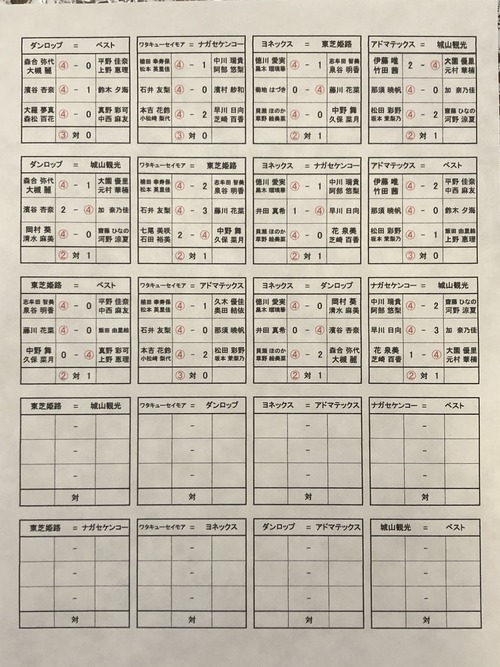 ダンロップ = ベスト
森合 弥代 大槻 麗 ④ - 0 平野 佳奈 上野 恵理
濱谷 杏奈 ④ - 1 鈴木 夕海
大羅 夢真 森松 百花 ④ - 0 真野 彩可 中西 麻友
③ 対 0
ワタキューセイモア = ナガセケンコー
植田 幸寿保 松本 英里佳 ④ - 1 中川 瑞貴 阿部 悠梨
石井 友梨 ④ - 0 濱村 紗和
本吉 花鈴 小松崎 梨代 ④ - 2 早川 日向 芝崎 百香
③ 対 0
ヨネックス = 東芝姫路
徳川 愛実 黒木 瑠璃華 ④ - 1 志牟田 智美 泉谷 明香
菊地 はづき 0 - ④ 藤川 花菜
貝瀬 ほのか 草野 絵美菜 ④ - 0 中野 舞 久保 菜月
② 対 1
アドマテックス = 城山観光
伊藤 唯 竹田 茜 2 - ④ 大園 優里 元村 華楠
那須 暁帆 ④ - 0 加 奈乃佳
松田 彩野 坂本 茉梨乃 ④ - 2 齋藤 ひなの 河野 涼夏
② 対 1
ダンロップ = 城山観光
森合 弥代 大槻 麗 ④ - 1 大園 優里 元村 華楠
濱谷 杏奈 2 - ④ 加 奈乃佳
岡村 葵 清水 麻美 ④ - 0 齋藤 ひなの 河野 涼夏
② 対 1
ワタキューセイモア = 東芝姫路
植田 幸寿保 松本 英里佳 ④ - 2 志牟田 智美 泉谷 明香
石井 友梨 ④ - 3 藤川 花菜
七尾 英瑛 石田 裕美 2 - ④ 中野 舞 久保 菜月
② 対 1
ヨネックス = ナガセケンコー
徳川 愛実 黒木 瑠璃華 ④ - 1 中川 瑞貴 阿部 悠梨
井田 真希 1 - ④ 早川 日向
貝瀬 ほのか 草野 絵美菜 ④ - 0 花 泉美 芝崎 百香
② 対 1
アドマテックス = ベスト
伊藤 唯 竹田 茜 ④ - 2 平野 佳奈 中西 麻友
那須 暁帆 ④ - 0 鈴木 夕海
松田 彩野 坂本 茉梨乃 ④ - 1 飯田 由里鈴 上野 恵理
③ 対 0
東芝姫路 = ベスト
志牟田 智美 泉谷 明香 ④ - 0 平野 佳奈 中西 麻友
藤川 花菜 ④ - 0 飯田 由里鈴
中野 舞 久保 菜月 0 - ④ 真野 彩可 上野 恵理
② 対 1
ワタキューセイモア = アドマテックス
植田 幸寿保 松本 英里佳 ④ - 1 久木 優佳 奥田 結依
石井 友梨 ④ - 0 那須 暁帆
本吉 花鈴 小松崎 梨代 ④ - 2 松田 彩野 坂本 茉梨乃
③ 対 0
ヨネックス = ダンロップ
徳川 愛実 黒木 瑠璃華 ④ - 0 岡村 葵 清水 麻美
井田 真希 0 - ④ 濱谷 杏奈
貝瀬 ほのか 草野 絵美菜 ④ - 2 森合 弥代 大槻 麗
② 対 1
ナガセケンコー = 城山観光
中川 瑞貴 阿部 悠梨 ④ - 2 齋藤 ひなの 河野 涼夏
早川 日向 ④ - 3 加 奈乃佳
花 泉美 芝崎 百香 1 - ④ 大園 優里 元村 華楠
② 対 1
東芝姫路 = 城山観光
-
-
-
対
ワタキューセイモア = ダンロップ
-
-
-
対
ヨネックス = アドマテックス
-
-
-
対
ナガセケンコー = ベスト
-
-
-
対
東芝姫路 = ナガセケンコー
-
-
-
対
ワタキューセイモア = ヨネックス
-
-
-
対
ダンロップ = アドマテックス
-
-
-
対
城山観光 = ベスト
-
-
-
対